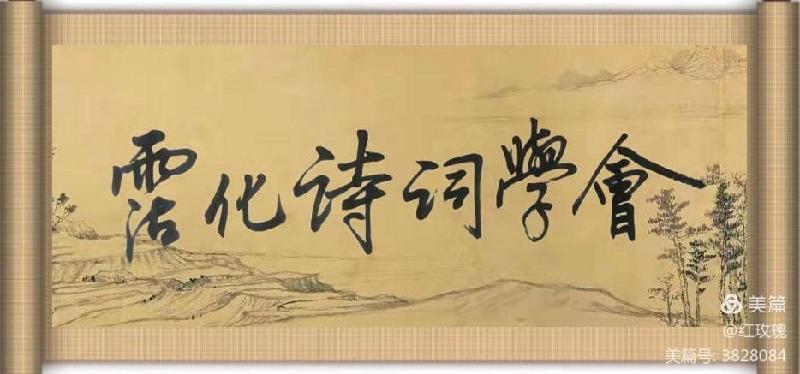 霑化诗词學會
美篇
@红玫瑰
美篇号: 3828084